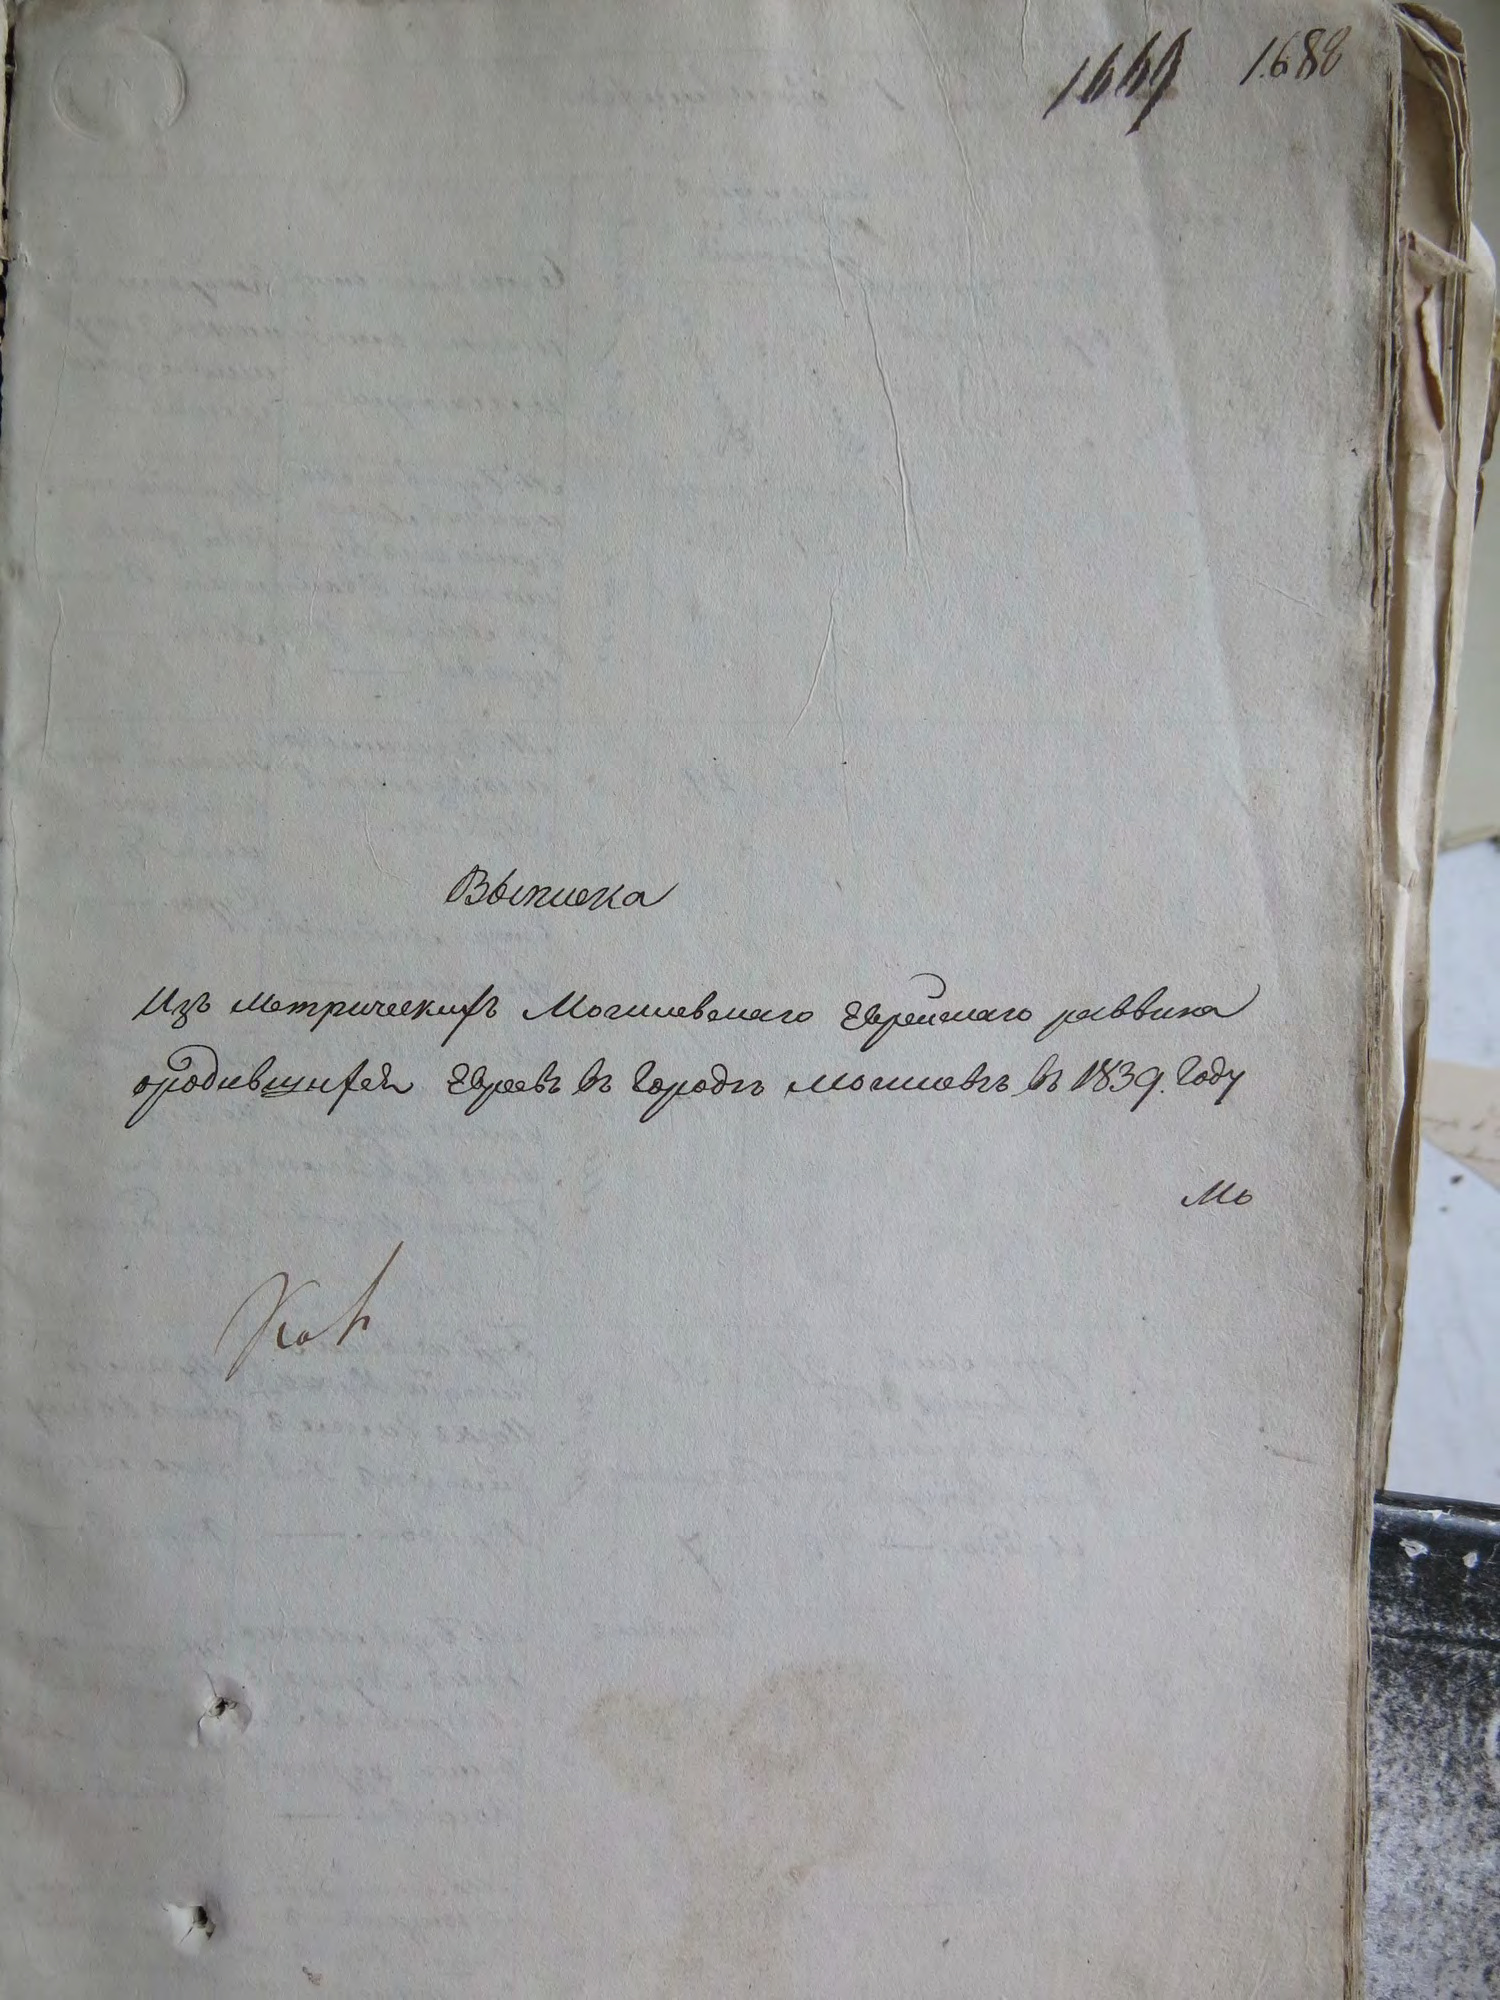 1669 1688
Выписка
Изъ метрическихъ Могилевскаго Еврейскаго раввина
ородившихся Евреевъ въ Городѣ Могилевѣ въ 1839. Году